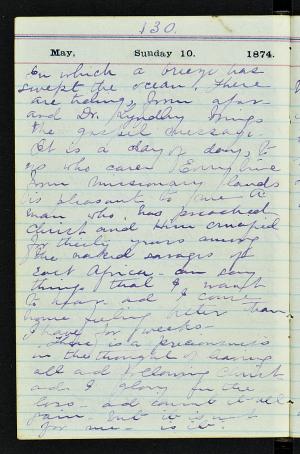 130.
May, Sunday 10. 1874.
On which a breeze has
swept the ocean. There
are tidings from afar
and Dr. Lyndley brings
the gospel message.
It is a day of days, to
us who care. Every line
from missionary lands
is pleasant to me. A
man who has preached
Christ and Him crucified
for thirty years among
the naked savages of
East Africa - can say
things that I want
to hear and I came
home feeling better than
I have for weeks -
There is a preciousness
in the thought of leaving
all and following Christ
and I glory in the
loss and count it all
gain. but it is not
for me - is it.